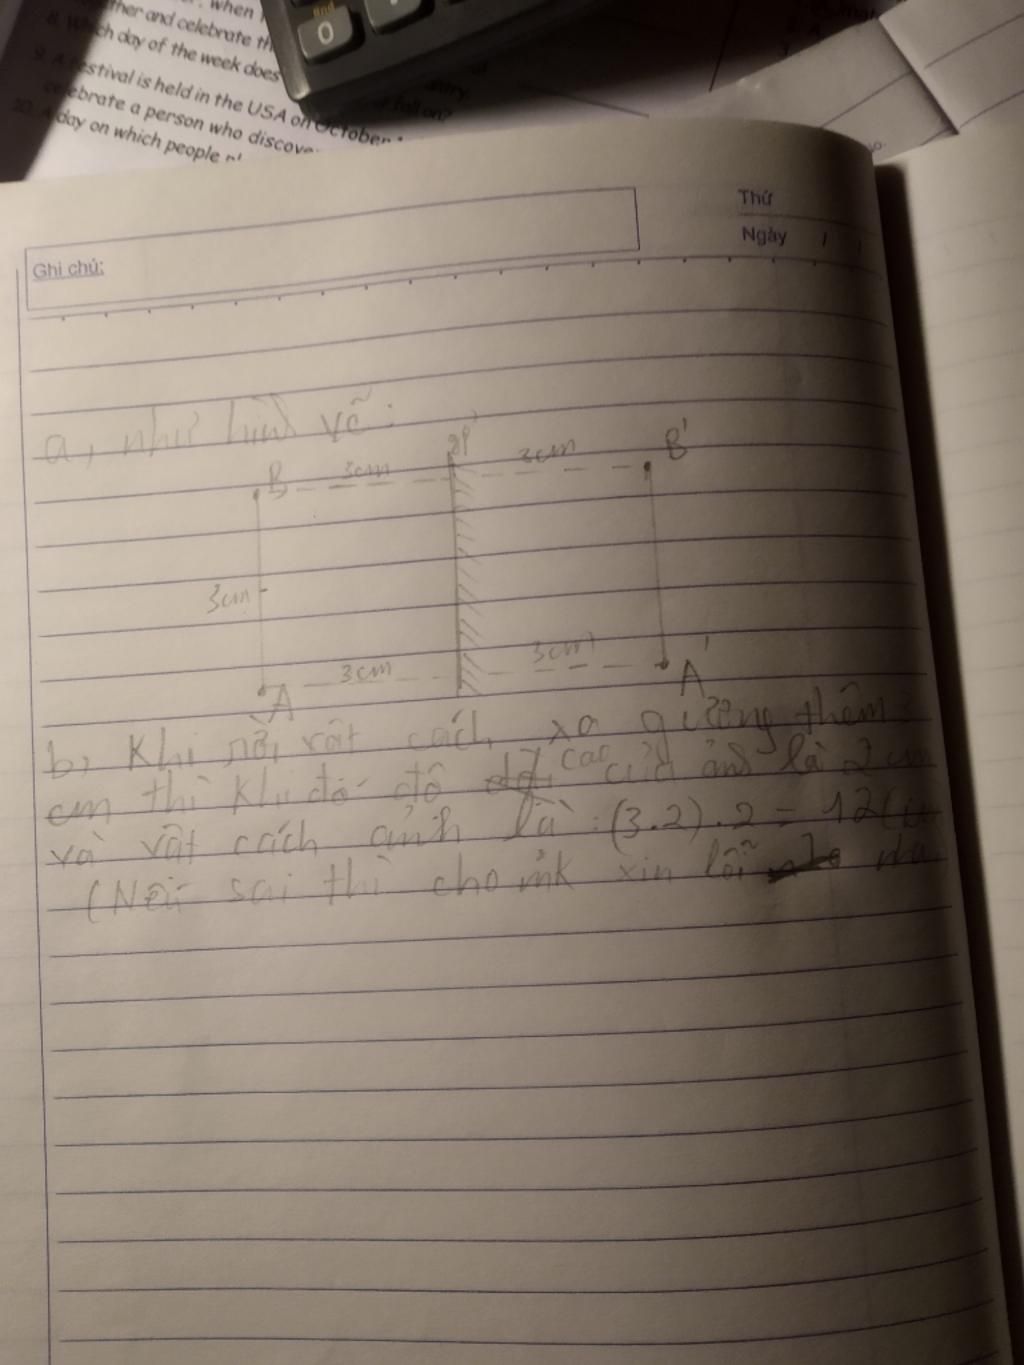 when
ther and celebrate th
8. Which day of the week does
9. A festival is held in the USA on October
celebrate a person who discove
fall on?
10. A day on which people
0
Thứ
Ngày / /
Ghi chú:
a, như hình vẽ:
B 3cm 3cm B'
3cm
A 3cm 3cm A'
b, Khi nời vật cách xa gường thêm 3
cm thì khi đó độ cao của ảnh là 2 cm
và vật cách ảnh là: (3.2).2 = 12(cm
(Nếu sai thì cho mk xin lỗi nha